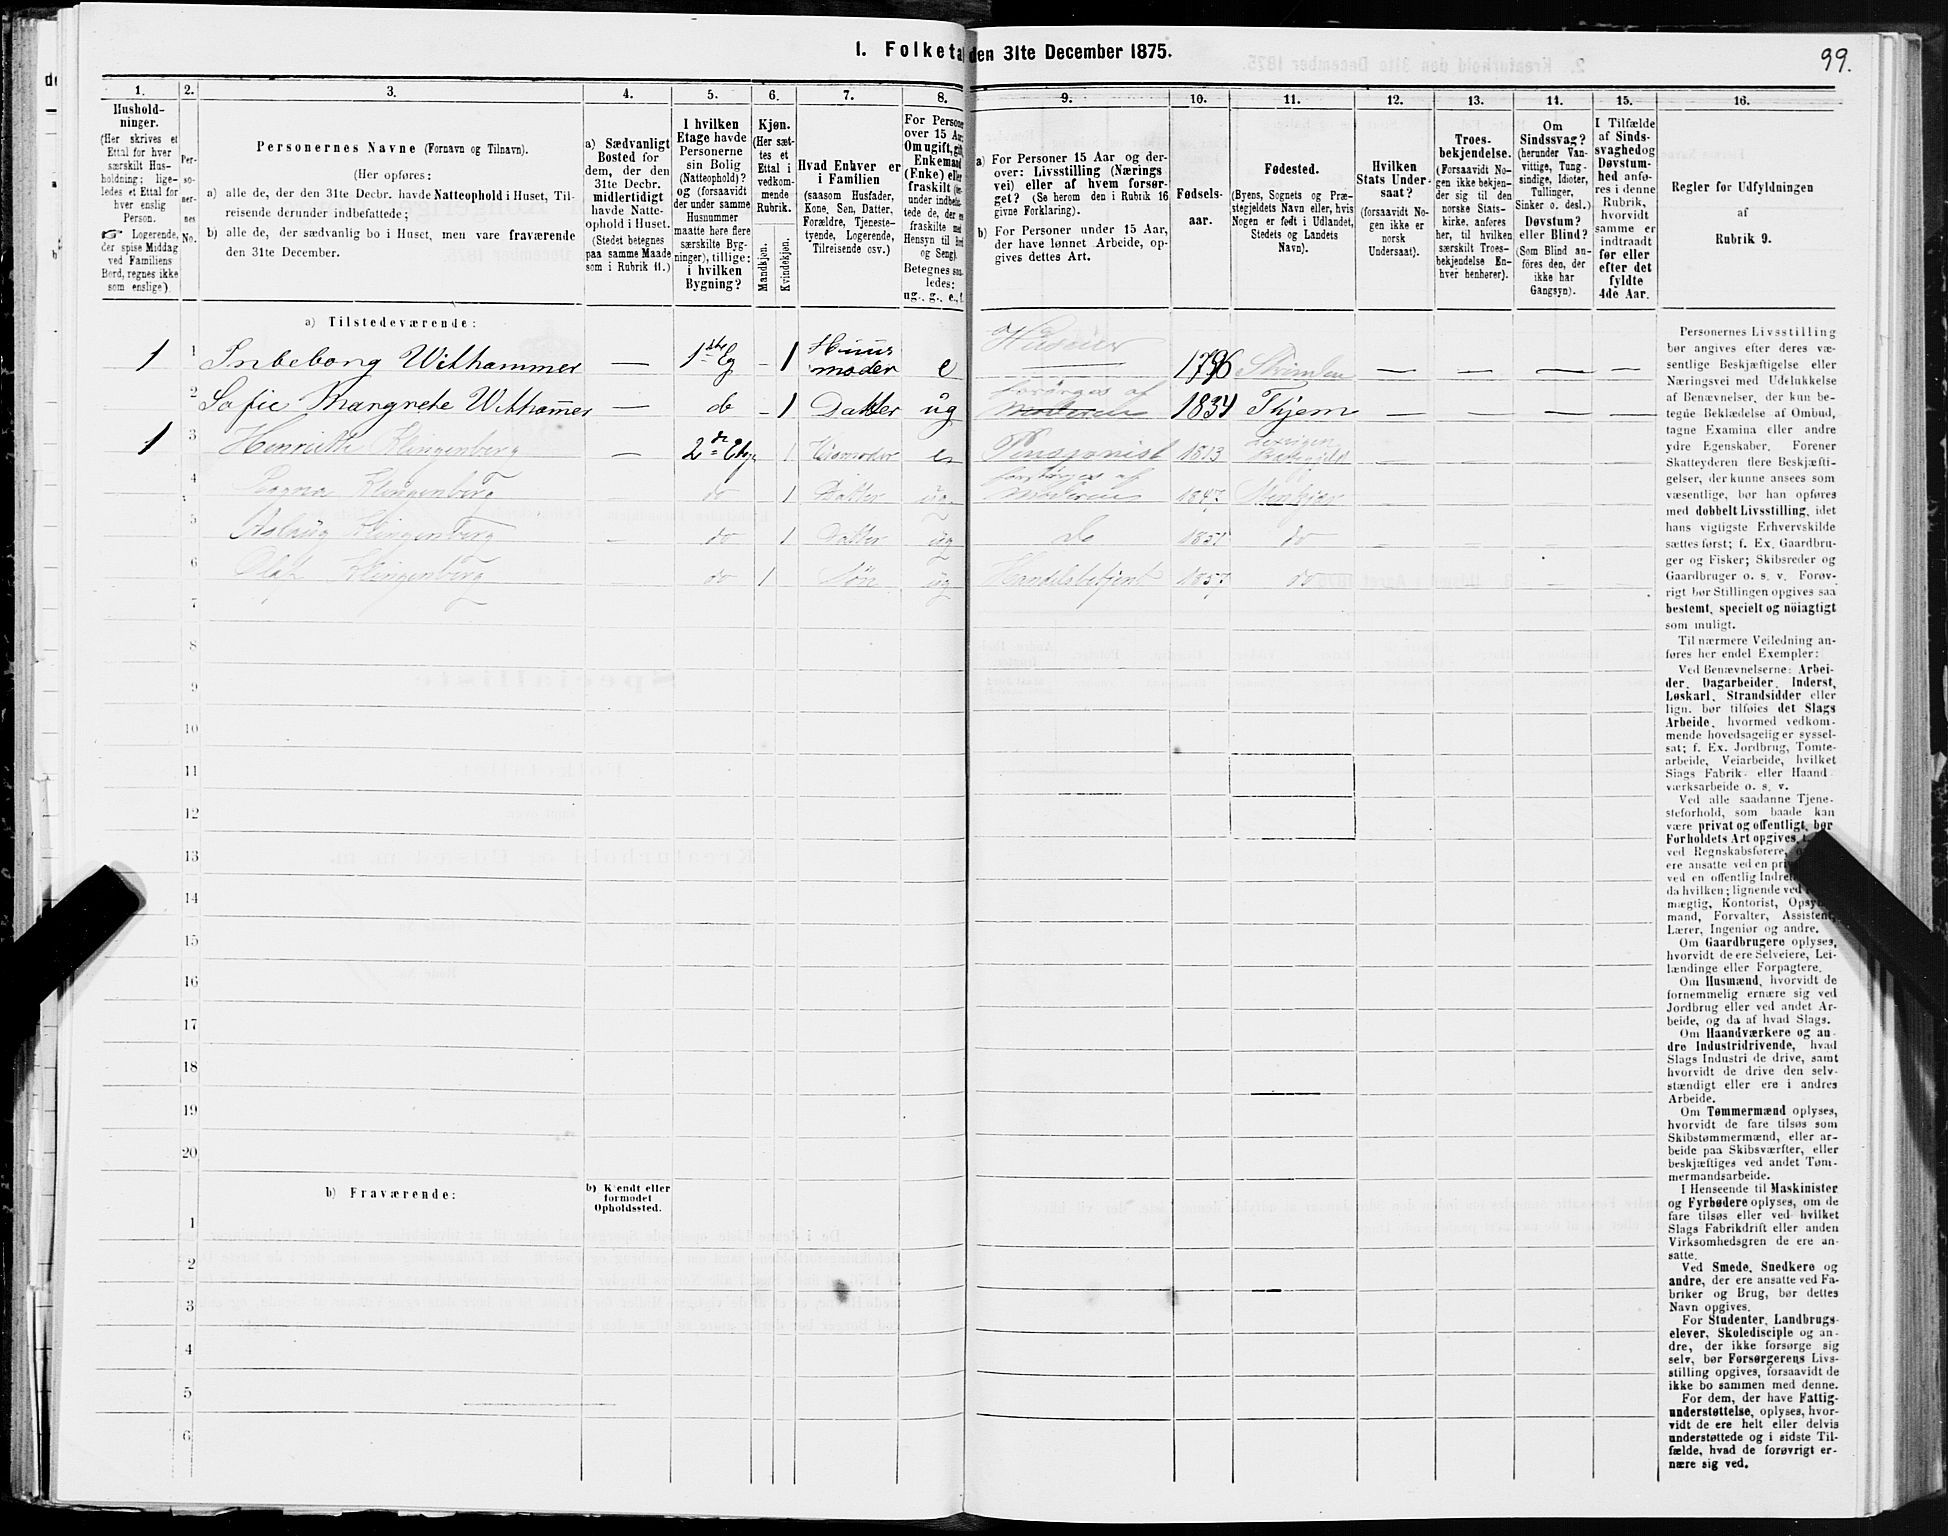 1. Folketal den 31te December 1875.
99.
1.
Hushold-
ninger.
(Her skrives et
Ettal for hver
særskilt Hus-
holdning; lige-
ledes et Ettal for
hver enslig
Person.
Logerende,
der spise Middag
ved Familiens
Bord, regnes ikke
som enslige).
2.
Per-
so-
ner-
nes
No.
3.
Personernes Navne (Fornavn og Tilnavn).
(Her opføres:
a) alle de, der den 31te Decbr. havde Natteophold i Huset, Til-
reisende derunder indbefattede;
b) alle de, der sædvanlig bo i Huset, men vare fraværende
den 31te December.
4.
a) Sædvanligt
Bosted for
dem, der den
31te Decbr.
midlertidigt
havde Natte-
ophold i Huset.
(Stedet betegnes
paa samme Maade
som i Rubrik 11.)
5.
I hvilken
Etage havde
Personerne
sin Bolig
(Natteophold)?
og (forsaavidt
der under samme
Husnummer
maatte høre flere
særskilte Byg-
ninger), tillige:
i hvilken
Bygning?
6.
Kjøn.
(Her sæt-
tes et
Ettal i
vedkom-
mende
Rubrik.
Mandkjøn.
Kvindekjøn.
7.
Hvad Enhver er
i Familien
(saasom Husfader,
Kone, Søn, Datter,
Forældre, Tjeneste-
tyende, Logerende,
Tilreisende osv.)
8.
For Persone
over 15 Aa
Om ugift, gift
Enkemand
(Enke) eller
fraskilt
Hensyn til Bord
og Seng).
Betegnes saa-
ledes:
ug., g., e., f.
9.
a) For Personer 15 Aar og der-
over: Livsstilling (Nærings
vei) eller af hvem forsør-
get? (Se herom den i Rubrik 16
givne Forklaring).
b) For Personer under 15 Aar,
der have lønnet Arbeide, op-
gives dettes Art.
10.
Fødsels-
aar.
11.
Fødested.
(Byens, Sognets og Præ-
stegjeldets Navn eller, hvis
Nogen er født i Udlandet,
Stedets og Landets
Navn).
12.
Hvilken
Stats Under-
saat?
(forsaavidt No-
gen ikke er
norsk
Undersaat).
13.
Troes-
bekjendelse.
(Forsaavidt No-
gen ikke bekjen-
der sig til den
norske Stats-
kirke, anføres
her, til hvilken
særskilt Troes-
bekjendelse En-
hver henhører).
14.
Om
Sindssvag?
(herunder Van-
vittige, Tung-
sindige, Idioter,
Tullinger,
Sinker o. desl.)
Døvstum?
eller Blind?
(Som Blind an-
føres den, der
ikke har
Gangsyn).
15.
I Tilfælde
af Sinds-
svaghed og
Døvstum-
hed anfø-
res i denne
Rubrik,
hvorvidt
samme er
indtraadt
før eller
efter det
fyldte
4de Aar.
16.
Regler for Udfyldningen
af
Rubrik 9.
a) Tilstedeværende:
1 1 Inbeborg Withammer — 1ste Eg – 1 Huus
moder e Huseier — 1796 Strinden — — — —
2 Sofie Margrete Withamer — do – 1 Datter ug forsørges af
Moderen 1834 Thjem — — — —
1 3 Henriette Klingenberg — 2den Etage 1 Husmoder e Pensionist 1813 — — — —
4 Ragna Klingenberg – do 1 Datter ug forsørges af
Moderen 1847 Stenkjær — — — —
5 Aslaug Klingenberg – do 1 Datter ug do 1851 do — — — —
6 Olaf Klingenberg do 1 Søn ug Handelsbetjent 1857 do — — — —
7
8
9
10
11
12
13
14
15
16
17
18
19
20
b) Fraværende:
b) Kjendt eller
formodet
Opholdssted.
1
2
3
4
5
6
Personernes Livsstilling
bør angives efter deres væ-
sentlige Beskjæftigelse eller
Næringsvei med Udelukkelse
af Benævnelser, der kun be-
tegne Beklædelse af Ombud,
tagne Examina eller andre
ydre Egenskaber. Forener
Skatteyderen flere Beskjæfti-
gelser, der kunne ansees som
væsentlige, bør han opføres
med dobbelt Livsstilling, idet
hans vigtigste Erhvervskilde
sættes først; f. Ex. Gaardbru-
ger og Fisker; Skibsreder og
Gaardbruger o. s. v. Forøv-
rigt bør Stillingen opgives saa
bestemt, specielt og nöiagtigt
som muligt.
Til nærmere Veiledning an-
føres her endel Exempler:
Ved Benævnelserne: Arbei-
der, Dagarbeider, Inderst,
Løskarl, Strandsidder eller
lign. bør tilføies det Slags
Arbeide, hvormed vedkom-
mende hovedsagelig er syssel-
sat; f. Ex. Jordbrug, Tomte-
arbeide, Veiarbeide, hvilket
Slags Fabrik- eller Haand-
værksarbeide o. s. v.
Ved alle saadanne Tjene-
steforhold, som baade kan
være privat og offentligt, bør
Forholdets Art opgives,
ved Regnskabsførere,
ere ansatte ved en pri
ved en offentlig Indre
da hvilken; lignende ved
mægtig, Kontorist, Opsyns-
mand, Forvalter, Assistent,
Lærer, Ingeniør og andre.
Om Gaardbrugere oplyses,
hvorvidt de ere Selveiere, Lei-
lændinge eller Forpagtere.
Om Husmænd, hvorvidt de
fornemmelig ernære sig ved
Jordbrug eller ved andet Ar-
beide, og da af hvad Slags.
Om Haandværkere og an-
dre Industridrivende, hvad
Slags Industri de drive, samt
hvorvidt de drive den selv-
stændigt eller ere i andres
Arbeide.
Om Tømmermænd oplyses,
hvorvidt de fare tilsøs som
Skibstømmermænd, eller ar-
beide paa Skibsværfter, eller
beskjæftiges ved andet Tøm-
mermandsarbeide.
I Henseende til Maskinister
og Fyrbødere oplyses, om de
fare tilsøs eller ved hvilket
Slags Fabrikdrift eller anden
Virksomhedsgren de ere an-
satte.
Ved Smede, Snedkere og
andre, der ere ansatte ved Fa-
briker og Brug, bør dettes
Navn opgives.
For Studenter, Landbrugs-
elever, Skoledisciple og an-
dre, der ikke forsørge sig
selv, bør Forsørgerens Livs-
stilling opgives, forsaavidt de
ikke bo sammen med denne.
For dem, der have Fattig-
understøttelse, oplyses, hvor-
vidt de ere helt eller delvis
understøttede og i sidste Til-
fælde, hvad de forøvrigt er-
nære sig ved.